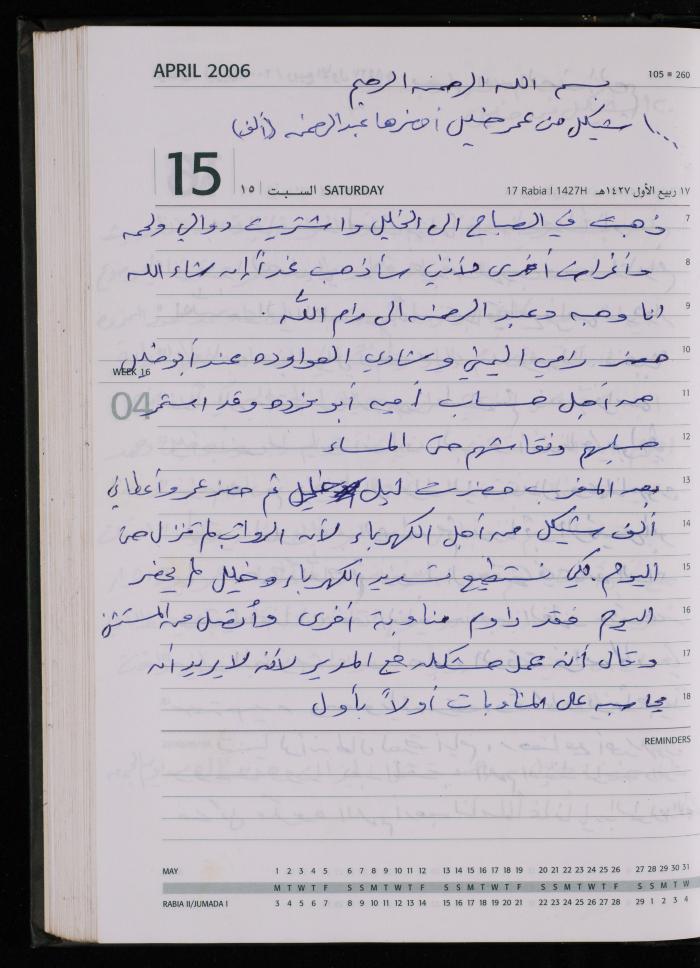 APRIL 2006
105 = 260
بسم الله الرحمن الرحيم
١٠٠٠ شيكل من عمر خليل أحضرها عبد الرحمن (ألف)
15 ١٥ السبت SATURDAY 17 Rabia I 1427H ١٧ ربيع الأول ١٤٢٧هـ
7 ذهبت في الصباح الى الخليل واشتريت دوالي ولحمه
8 وأغراض أخرى لأنني سأذهب غداً إن شاء الله
9 انا وهبه وعبد الرحمن الى رام الله.
10 حضر رامي اليمني وشادي العواوده عند أبو خليل
WEEK 16
04
11 من أجل حساب أمين أبو وقد استمر
12 حسابهم ونقاشهم حتى المساء
13 بعد المغرب حضرت ليلى خليل ثم حضر عمر وأعطاني
14 ألف شيكل من أجل الكهرباء لأن الرواتب لم تنزل حتى
15 اليوم. لكي نستطيع تسديد الكهرباء وخليل لم يحضر
16 اليوم فقد داوم مناوبة أخرى وأتصل من المستشفى
17 وقال أنه عمل مشكله مع المدير لأنه لا يريد أن
18 يحاسبه على المناوبات أولاً بأول
REMINDERS
MAY 1 2 3 4 5 6 7 8 9 10 11 12 13 14 15 16 17 18 19 20 21 22 23 24 25 26 27 28 29 30 31
M T W T F S S M T W T F S S M T W T F S S M T W T F S S M T W
RABIA II/JUMADA I 3 4 5 6 7 8 9 10 11 12 13 14 15 16 17 18 19 20 21 22 23 24 25 26 27 28 29 1 2 3 4